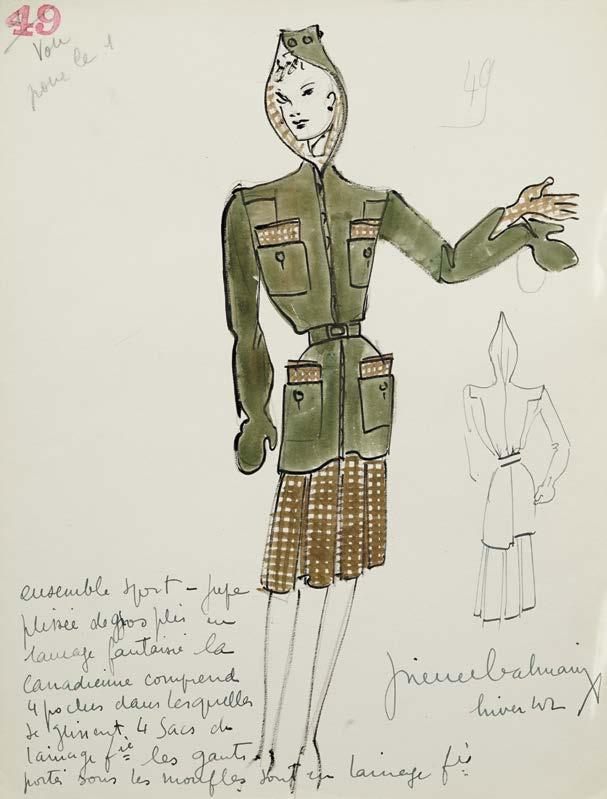 49
Voir
pour le 1
49
ensemble sport – jupe
plissée de gros plis en
lainage fantaisie la
canadienne comprend
4 poches dans lesquelles
se glissent 4 sacs de
lainage fie les gants
portés sous les moufles sont en lainage fie
pierre balmain
hiver 42